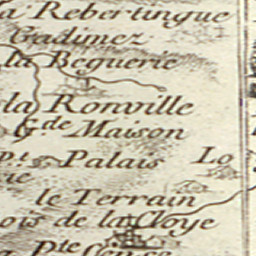 la Rebertingue
Cadimez
la Beguerie
la Ronville
Gde Maison
pt Palais Lo
ie
le Terrain
ois de la Cloye
a Pte Cense